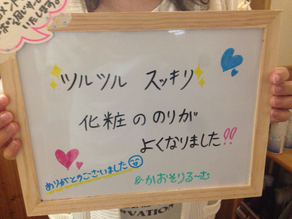 ツルツル スッキリ
化粧の のりが
よくなりました!!
ありがとうございました
@かおそりるーむ